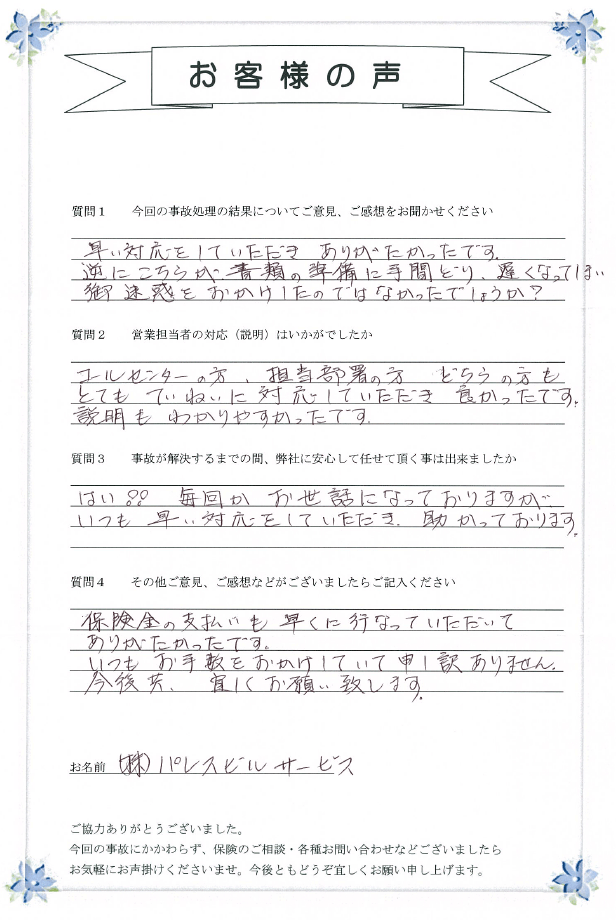 お客様の声
質問１　今回の事故処理の結果についてご意見、ご感想をお聞かせください
早い対応をしていただき ありがたかったです。
逆にこちらが 書類の準備に手間どり、遅くなってしまい
御迷惑をおかけしたのではなかったでしょうか？
質問２　営業担当者の対応（説明）はいかがでしたか
コールセンターの方、担当部署の方 どちらの方も
とても ていねいに 対応していただき 良かったです。
説明も わかりやすかったです。
質問３　事故が解決するまでの間、弊社に安心して任せて頂く事は出来ましたか
はい!! 毎回か お世話になっておりますが
いつも 早い対応をしていただき、助かっております。
質問４　その他ご意見、ご感想などがございましたらご記入ください
保険金の支払いも 早くに行なっていただいて
ありがたかったです。
いつも お手数をおかけしていて申し訳ありません。
今後共、宜しくお願い致します。
お名前 (株)パレスビルサービス
ご協力ありがとうございました。
今回の事故にかかわらず、保険のご相談・各種お問い合わせなどございましたら
お気軽にお声掛けくださいませ。今後ともどうぞ宜しくお願い申し上げます。